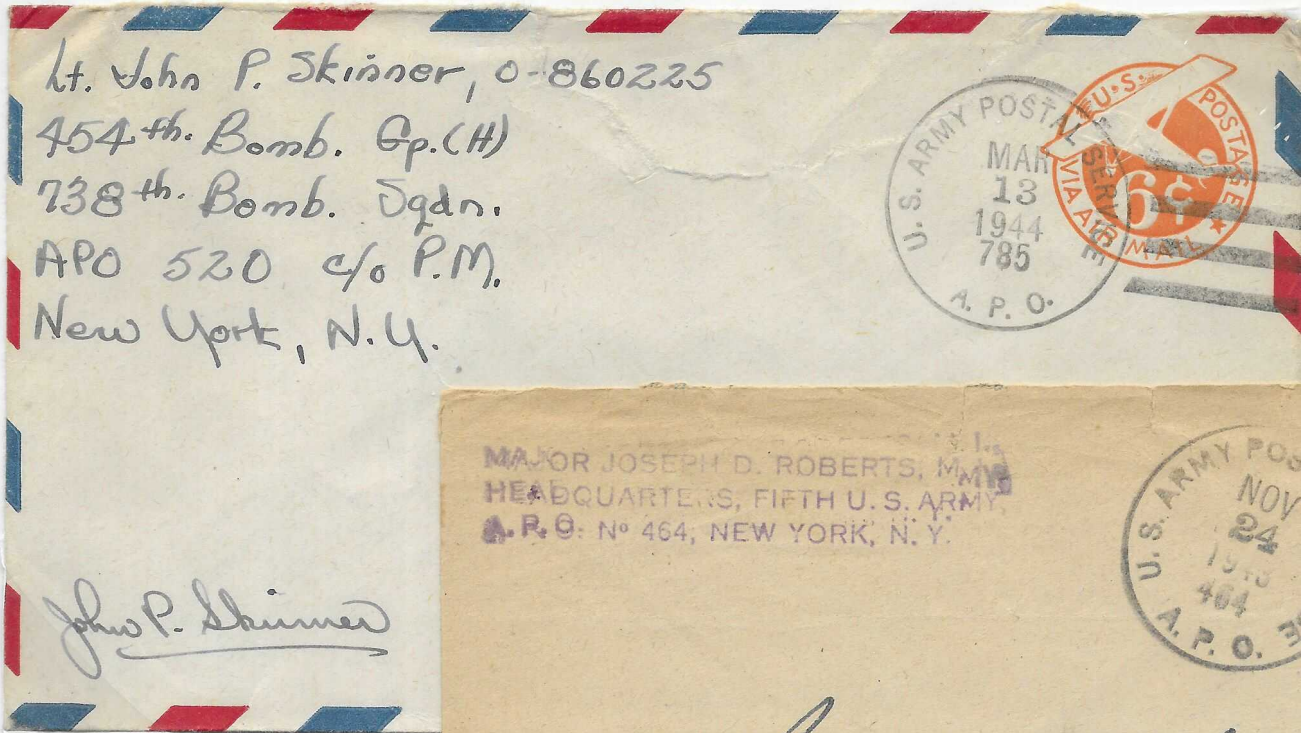 Lt. John P. Skinner, O-860225
454th. Bomb. Gp.(H)
738th. Bomb. Sqdn.
APO 520 c/o P.M.
New York, N.Y.
U.S. ARMY POSTAL SERVICE
MAR
13
1944
785
A.P.O.
U.S. POSTAGE
6¢
VIA AIR MAIL
MAJOR JOSEPH D. ROBERTS,
HEADQUARTERS, FIFTH U.S. ARMY,
A.P.O. Nº 464, NEW YORK, N.Y.
U.S. ARMY POS
NOV
24
464
A.P.O.
John P. Skinner